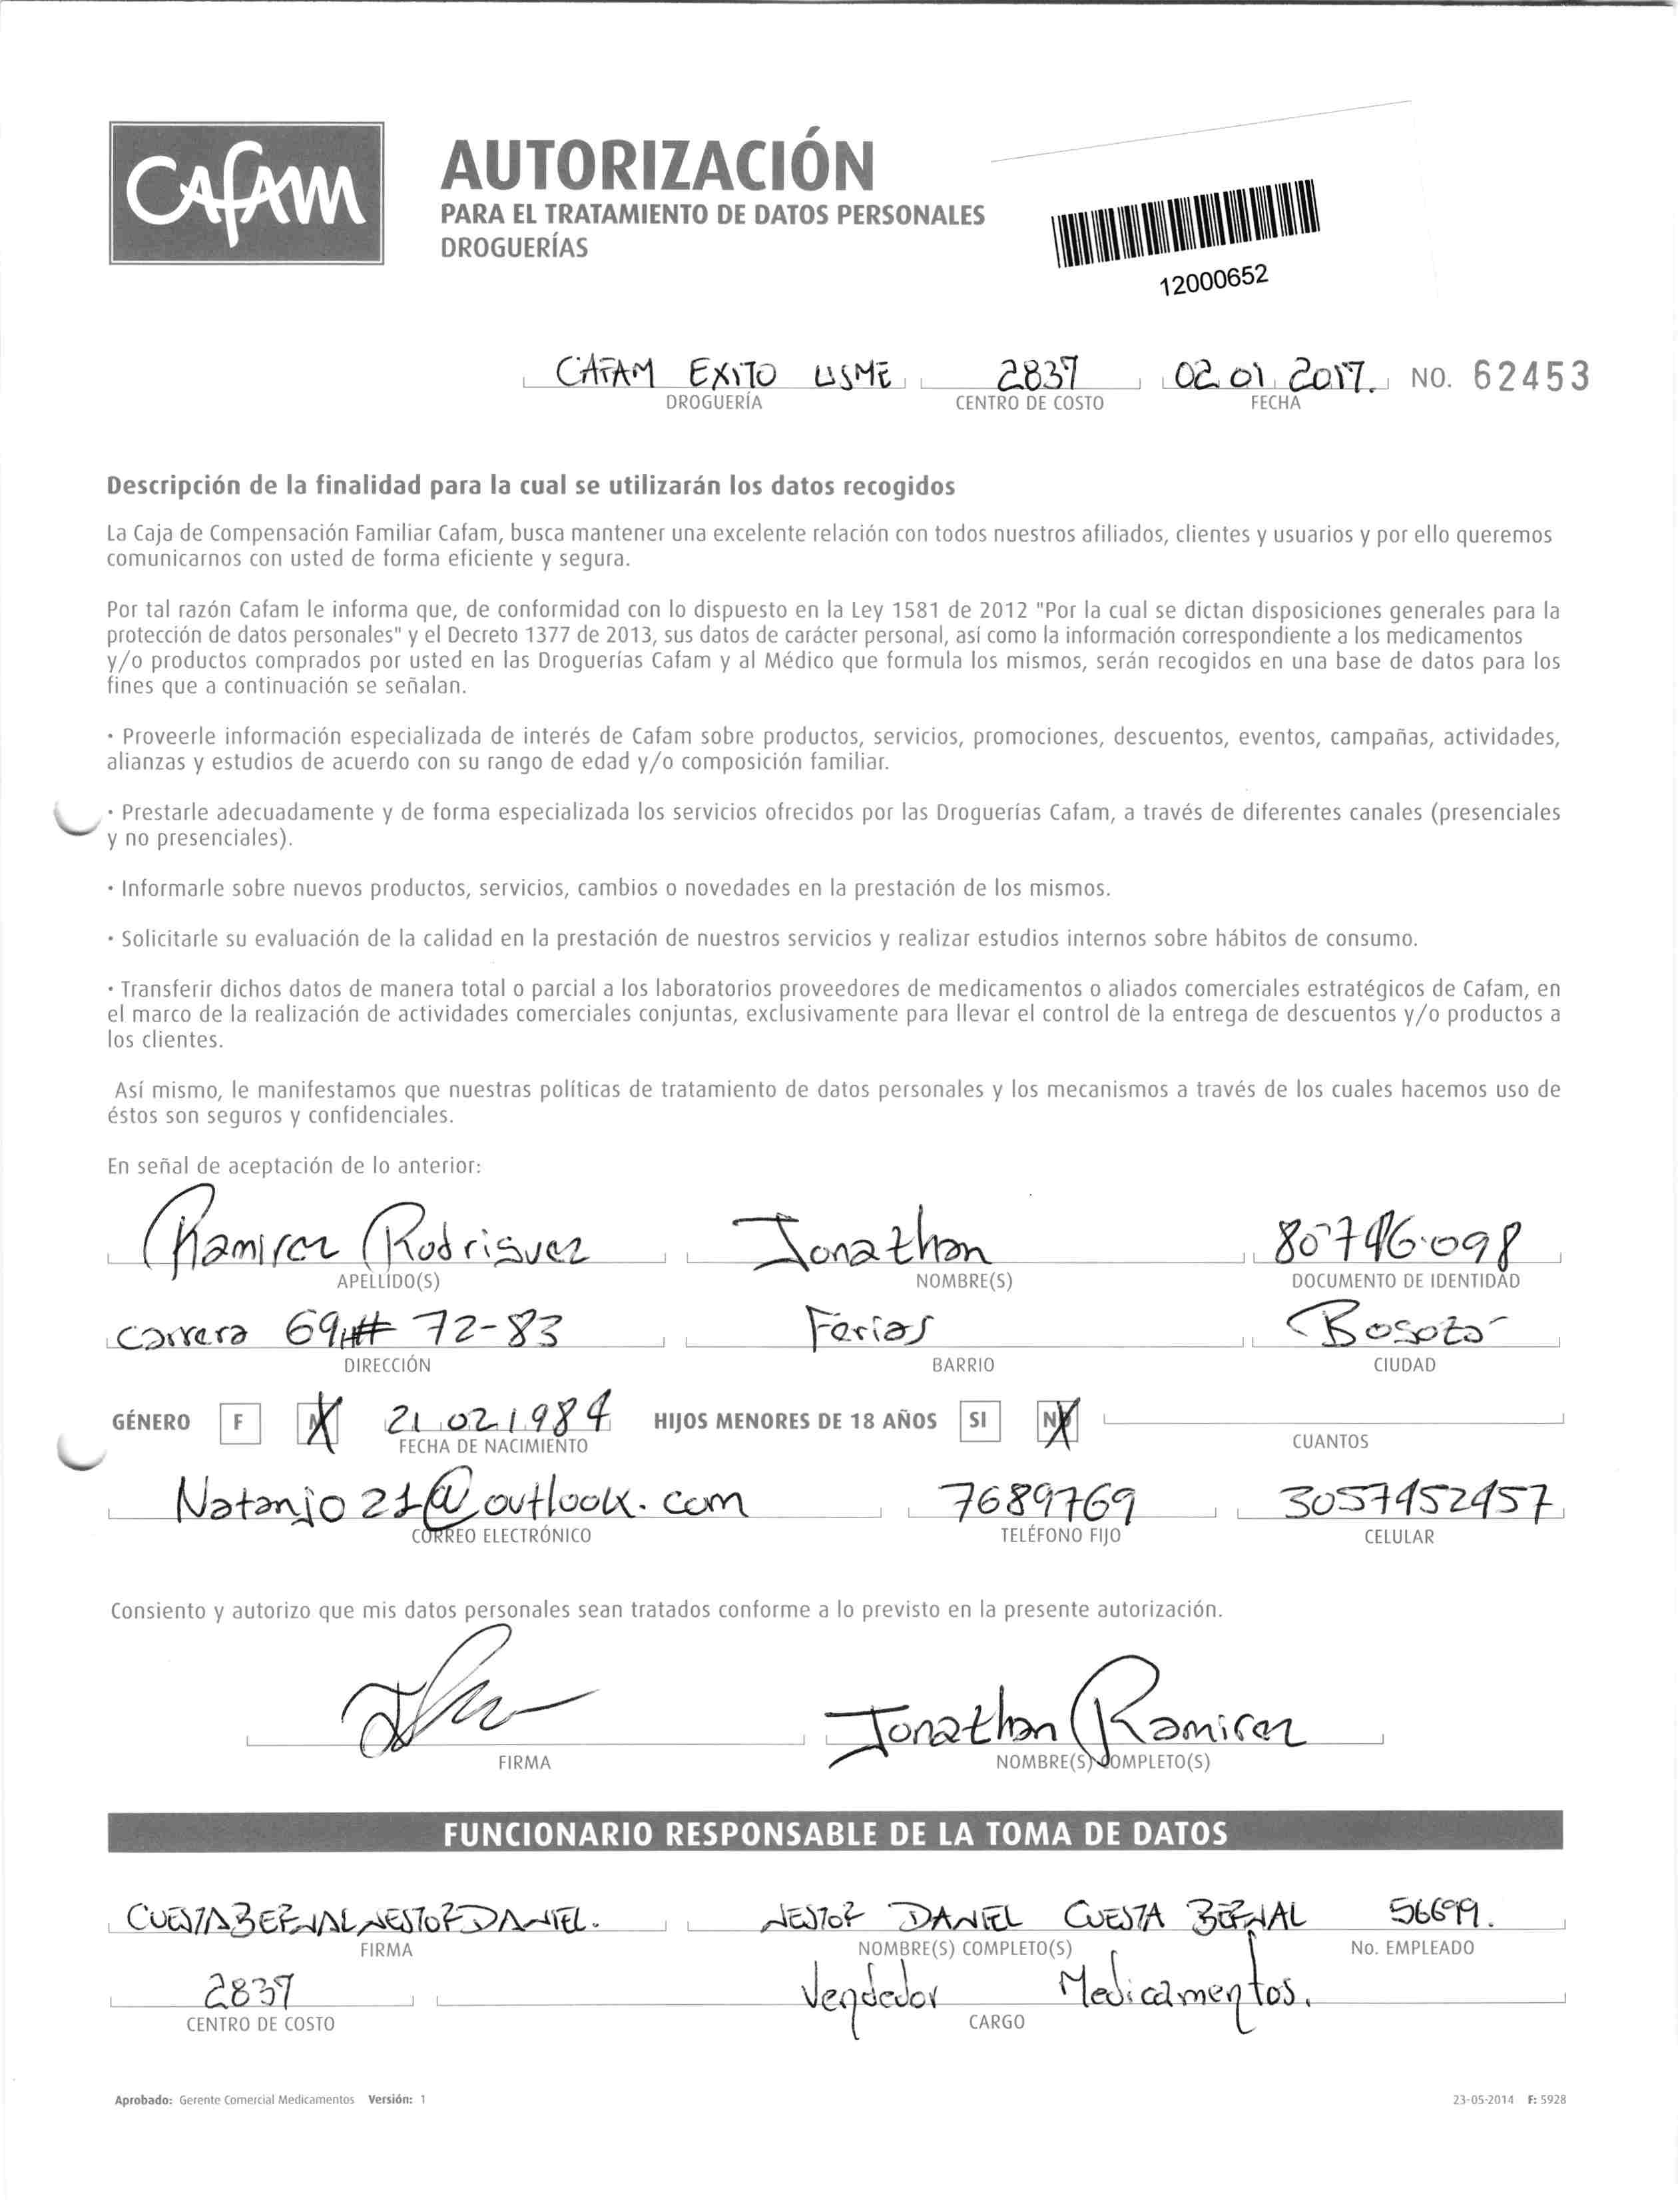 CAFAM
AUTORIZACIÓN
PARA EL TRATAMIENTO DE DATOS PERSONALES
DROGUERÍAS
12000652
CAFAM EXITO USME 2837 02 01 2017. NO. 62453
DROGUERÍA CENTRO DE COSTO FECHA
Descripción de la finalidad para la cual se utilizarán los datos recogidos
La Caja de Compensación Familiar Cafam, busca mantener una excelente relación con todos nuestros afiliados, clientes y usuarios y por ello queremos
comunicarnos con usted de forma eficiente y segura.
Por tal razón Cafam le informa que, de conformidad con lo dispuesto en la Ley 1581 de 2012 "Por la cual se dictan disposiciones generales para la
protección de datos personales" y el Decreto 1377 de 2013, sus datos de carácter personal, así como la información correspondiente a los medicamentos
y/o productos comprados por usted en las Droguerías Cafam y al Médico que formula los mismos, serán recogidos en una base de datos para los
fines que a continuación se señalan.
· Proveerle información especializada de interés de Cafam sobre productos, servicios, promociones, descuentos, eventos, campañas, actividades,
alianzas y estudios de acuerdo con su rango de edad y/o composición familiar.
· Prestarle adecuadamente y de forma especializada los servicios ofrecidos por las Droguerías Cafam, a través de diferentes canales (presenciales
y no presenciales).
· Informarle sobre nuevos productos, servicios, cambios o novedades en la prestación de los mismos.
· Solicitarle su evaluación de la calidad en la prestación de nuestros servicios y realizar estudios internos sobre hábitos de consumo.
· Transferir dichos datos de manera total o parcial a los laboratorios proveedores de medicamentos o aliados comerciales estratégicos de Cafam, en
el marco de la realización de actividades comerciales conjuntas, exclusivamente para llevar el control de la entrega de descuentos y/o productos a
los clientes.
Así mismo, le manifestamos que nuestras políticas de tratamiento de datos personales y los mecanismos a través de los cuales hacemos uso de
éstos son seguros y confidenciales.
En señal de aceptación de lo anterior:
Ramirez Rodriguez Jonathan 80746098
APELLIDO(S) NOMBRE(S) DOCUMENTO DE IDENTIDAD
carrera 69 # 72-83 Ferias Bogota
DIRECCIÓN BARRIO CIUDAD
GÉNERO F M 21 02 1984 HIJOS MENORES DE 18 AÑOS SI NO
FECHA DE NACIMIENTO CUANTOS
Natanjo21@outlook.com 7689769 3057452457
CORREO ELECTRÓNICO TELÉFONO FIJO CELULAR
Consiento y autorizo que mis datos personales sean tratados conforme a lo previsto en la presente autorización.
Jonathan Ramirez
FIRMA NOMBRE(S) COMPLETO(S)
FUNCIONARIO RESPONSABLE DE LA TOMA DE DATOS
CUESTA BERNAL NESTOR DANIEL. NESTOR DANIEL CUESTA BERNAL 56699.
FIRMA NOMBRE(S) COMPLETO(S) No. EMPLEADO
2837 Vendedor Medicamentos.
CENTRO DE COSTO CARGO
Aprobado: Gerente Comercial Medicamentos Versión: 1 23-05-2014 F: 5928